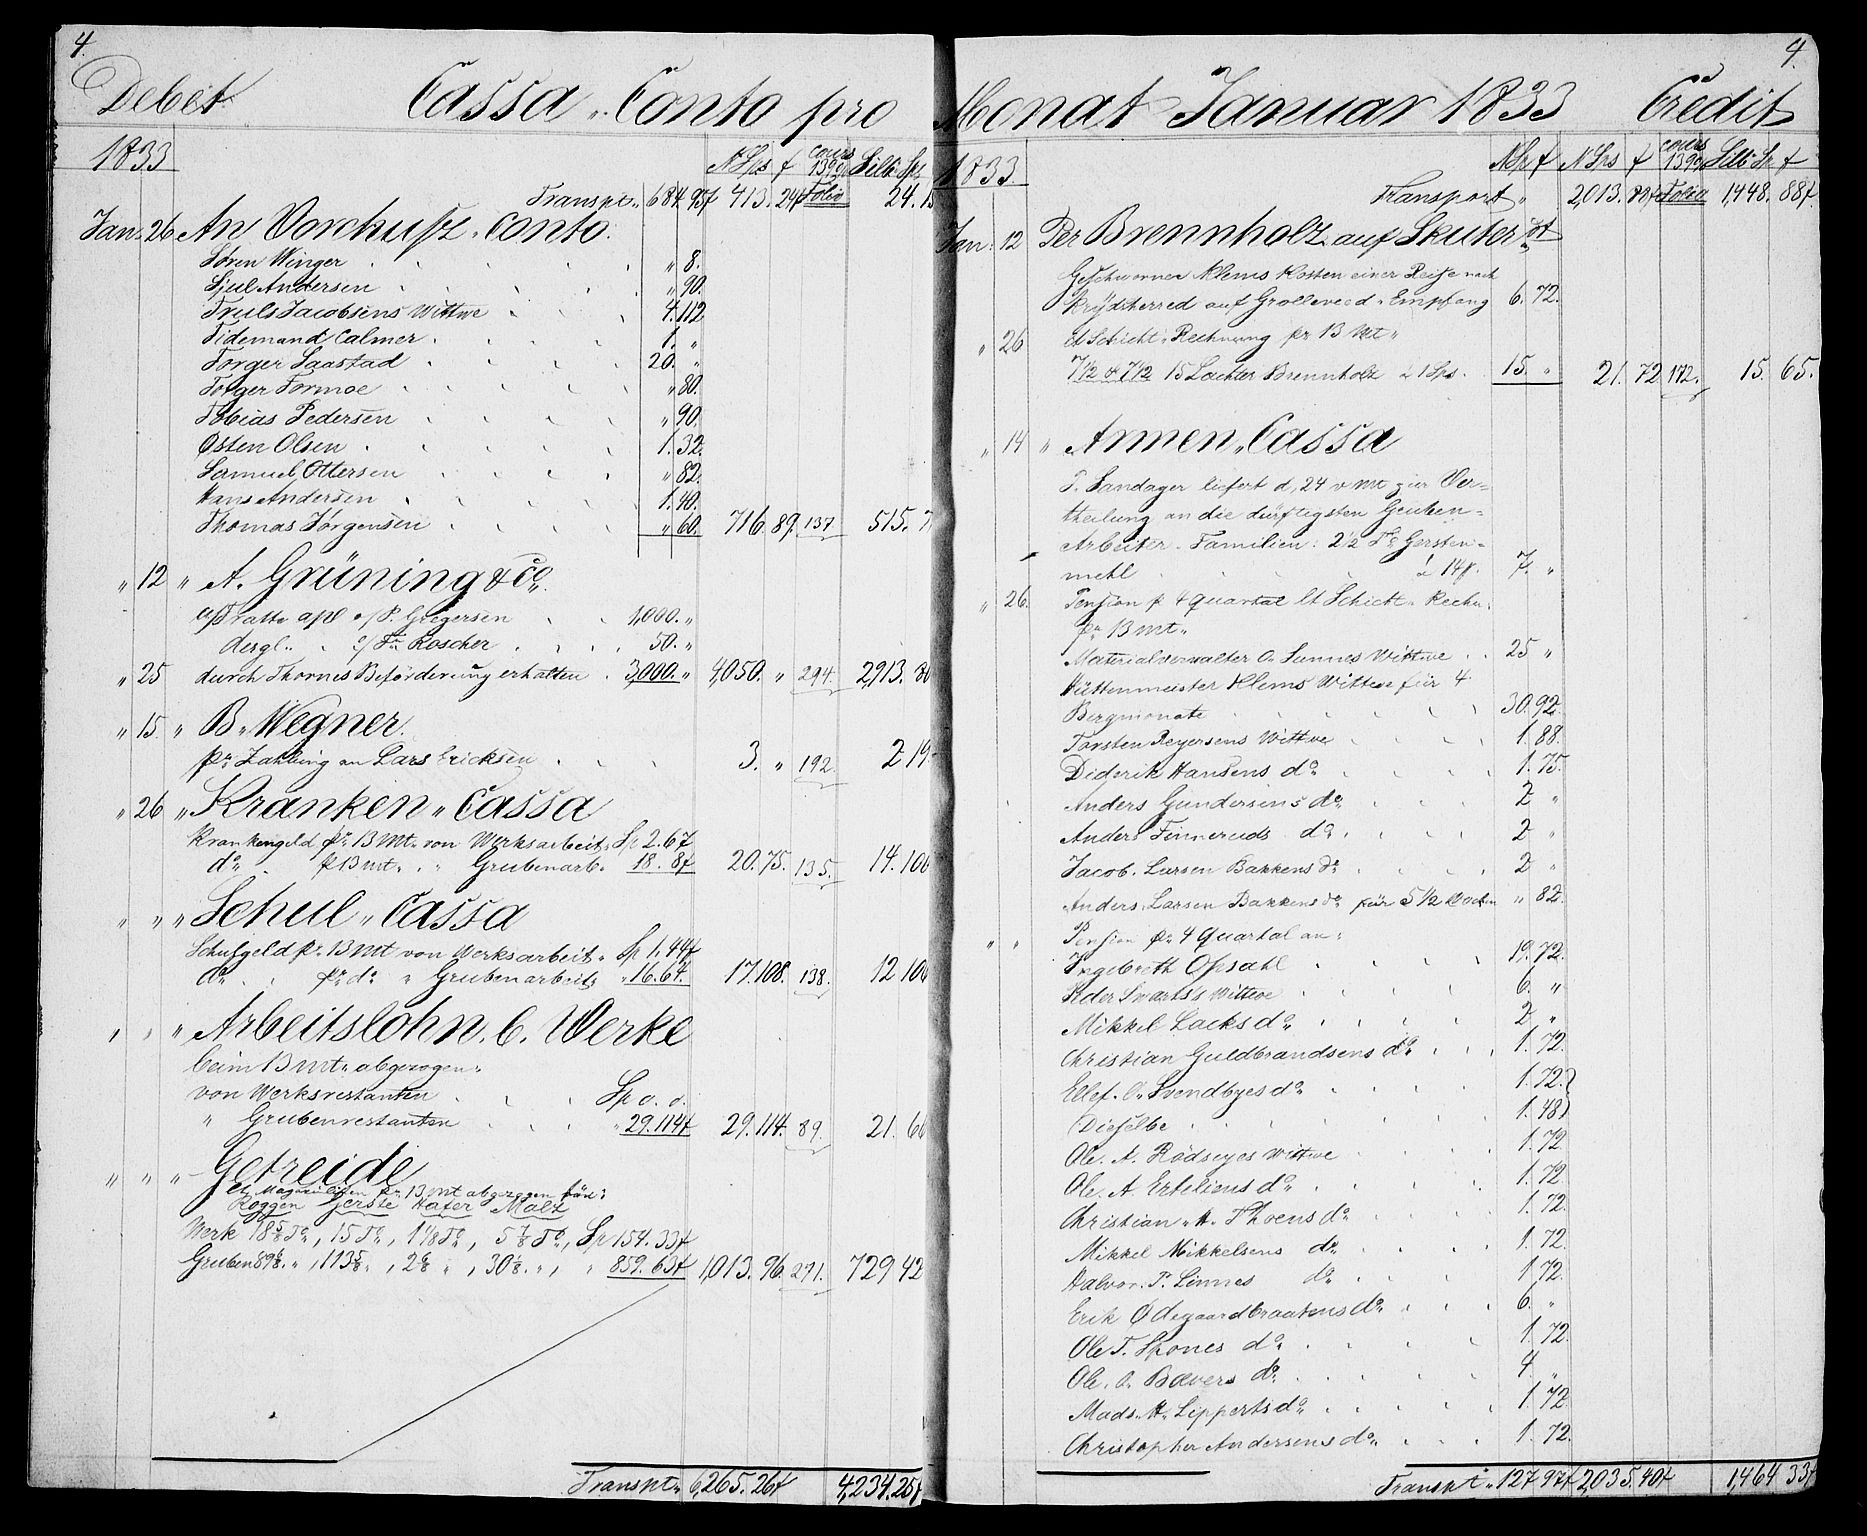 4.
Debet Cassa Conto pro
1833
NSps f cours 139% Silb: Sps
Transpt „ 684. 95f 413. 24f Folio 24. 15
Jan: 26 An Vorschusz Conto.
Søren Winger „ 8.
Sjul Andersen „ 90.
Truls Jacobsens Wittwe 4. 112
Tidemand Calmer 1. „
Torger Saastad 20. „
Torger Formoe „ 80.
Tobias Pedersen „ 90.
Østen Olsen 1. 32.
Samuel Ottersen „ 82.
Hans Andersen 1. 40.
Thomas Jørgensen „ 60. 716. 89. 137 515. 7
„ 12 „ A. Grüning & Co.
Tratte a/ o/ P. Gregersen 1,000. „
desgl. o/ Fr. Roscher 50. „
„ 25 durch Thornes Beförderung erhalten 3,000. „ 4,050. „ 294. 2,913. 80
„ 15. „ B. Wegner.
pr Zahlung an Lars Ericksen 3. „ 192. 2 19
„ 26 „ Kranken „ Cassa
Krankengeld pr 13 Mt. von Werksarbeit. Sp 2. 67
do pr 13 Mt. „ Grubenarb. 18. 8f 20. 75. 135. 14. 106
„ „ „ Schul „ Cassa
Schulgeld pr 13 Mt von Werksarbeit. Sp 1. 44f
do pr do „ Grubenarbeit. „ 16. 64. 17. 108. 138. 12 106
„ „ „ Arbeitslohn. b. Werke
beim 13 Mt. abgezogen.
von Werksrestanten Sp o. o.
„ Grubenrestanten „ 29. 114f 29. 114. 89. 21. 66
„ „ „ Getreide
lt Magazinlisten pr 13 Mt abgezogen für:
Roggen Gerste Hafer Malz
Werk 18 5/8 To, 15 To, 1 1/8 To, 5 7/8 To, Sp 154. 33f
Gruben 89 6/8. „ , 113 5/8 „ , 2 6/8 „ , 30 1/8. „ , „ 859. 63f 1,013. 96. 291. 729 42
Transpt „ 6,265. 26f 4,234. 25f
4.
Monat Januar 1833 Credit
1833
NSp f NSps f cours 139% Silb Sp f
Transport „ 2,013. 88f Folio 1,448. 88f.
Jan: 12 Per Brennholz auf Skuter
Geschworner Klems Kosten einer Reise nach
Krydsherred auf Grolleveed „ Empfang 6. 72.
„ 26 lt Schicht „ Rechnung pr 13 Mt „
7 1/2 & 7 1/2 15 Lachter Brennholz à 1 Sps. 15. „ 21. 72 172. 15. 65.
„ 14 „ Armen „ Cassa
P. Sandager liefert d, 24 v Mt zur Ver-
theilung an die dürftigsten Gruben-
Arbeiter „ Familien: 2 1/2 To Gersten-
mehl à 14 f. 7. „
„ 26. Pension pr 4 Quartal lt Schicht „ Rechn.
pr 13 Mt „
Materialverwalter O. Sunnes Wittwe 25 „
Hüttenmeister Klems Wittwe für 4
Bergmonate 30. 92.
Torsten Reyersens Wittwe 1. 88.
Diderik Hansens do 1. 75.
Anders Gundersens do 2 „
Anders Finneruds do 2 „
Jacob. Larsen Bakkens do 2 „
Anders. Larsen Bakkens do für 5 1/2 Wochen „ 82.
„ „ Pension pr 4 Quartal an:
Ingebreth Opsahl 19. 72.
Peder Svarts's Wittwe 6. „
Mikkel Lacks do 2 „
Christian Guldbrandsens do 1. 72.
Ellef. O. Svendbyes do 1. 72.
Dieselbe 1. 48
Ole. A. Rödseyes Wittwe 1. 72
Ole. A. Erteliens do 1. 72
Christian. H. Thoens do 1. 72.
Mikkel Mikkelsens do 1. 72.
Halvor. P. Linnes do 1 72.
Erik Ødegaardbraatens do 6. „
Ole T. Spones do 1. 72.
Ole. O. Bævers do 4. „
Mads. H. Lipperts do 1. 72.
Christopher Andersens do 1. 72.
Transpt „ 127 97f 2,035. 40f 1,464 33f